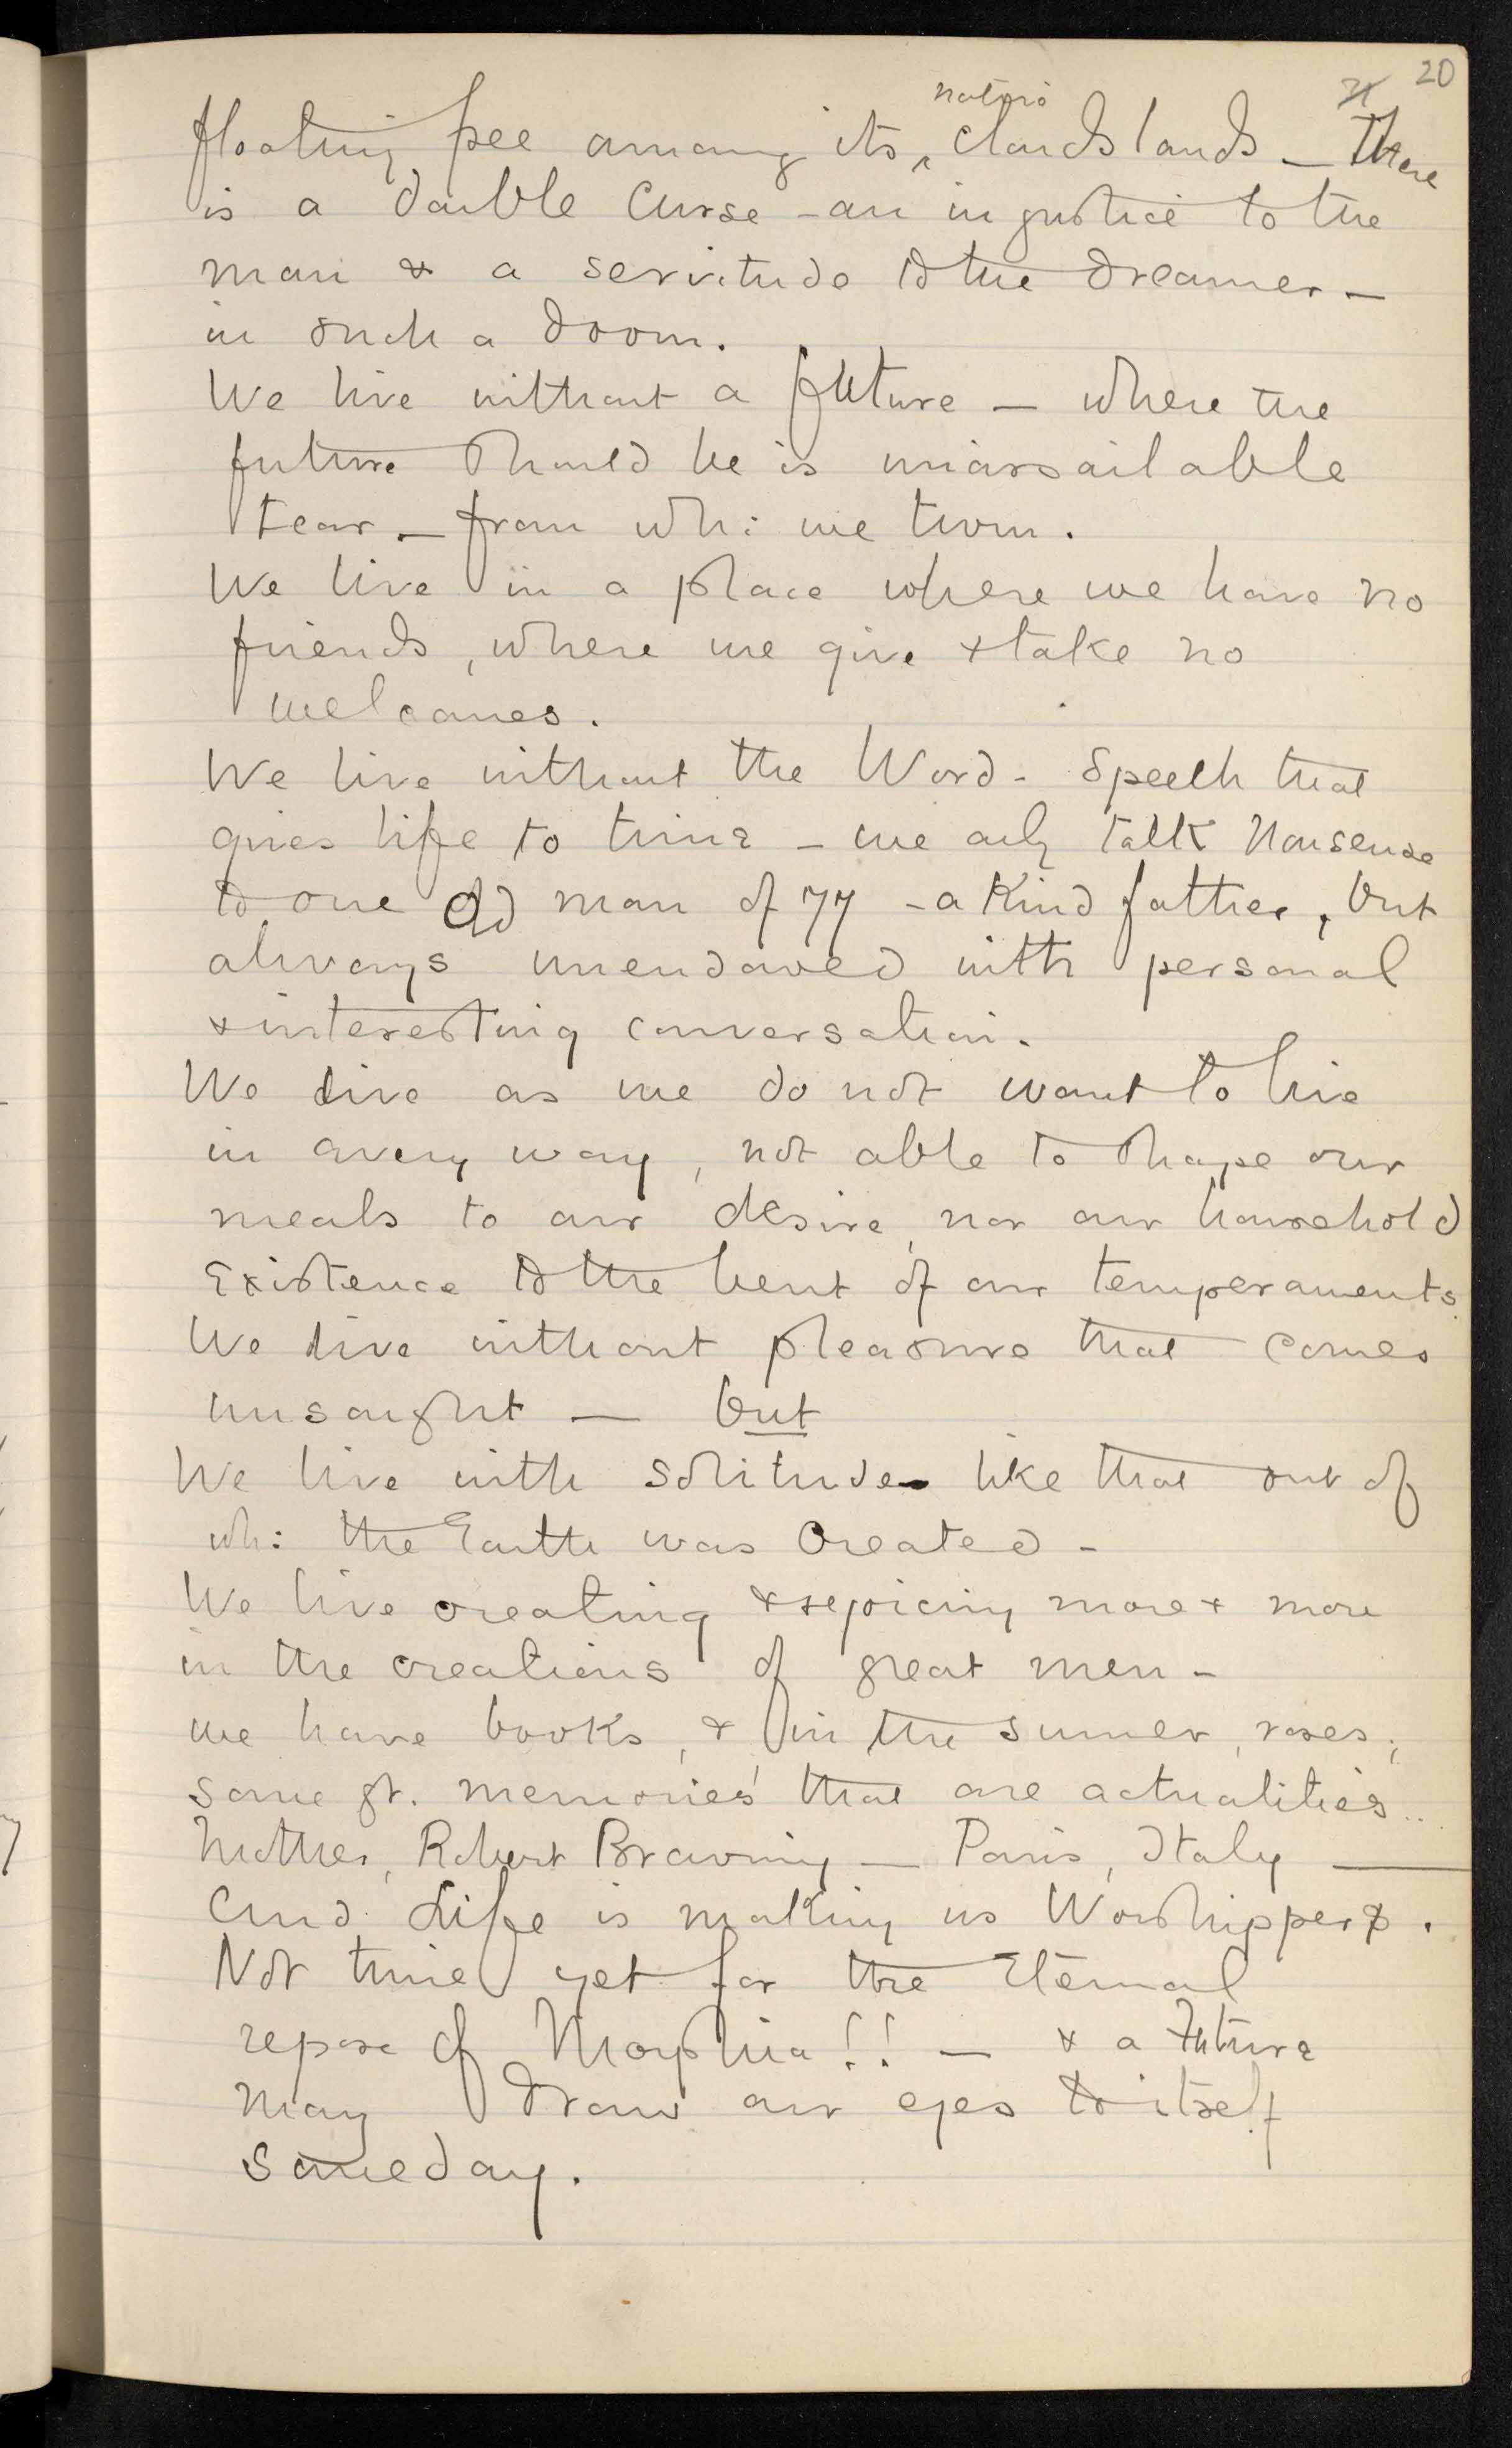 20
21
native
floating free among its ‸ cloudslands — There
is a double curse – an injustice to the
man & a servitude to the dreamer –
in such a doom.
We live without a future — where the
future should be is unassailable
fear – from whi: we turn.
We live in a place where we have no
friends, where we give & take no
welcomes.
We live without the Word – Speech that
gives life to time – we only talk nonsense
to one old man of 77 – a kind father, but
always unendowed with personal
& interesting conversation.
We live as we do not want to live
in every way, not able to shape our
meals to our desire, nor our household
existence to the bent of our temperaments.
We live without pleasure that comes
unsought — but
We live with solitude like that out of
whi: the Earth was created –
We live creating & rejoicing more & more
in the creations of great men –
we have books, & in the summer, roses;
some gt. memories that are actualities..
Mother, Robert Browning — Paris, Italy —
And Life is making us Worshippers.
Not time yet for the Eternal
repose of Morphia!! — & a future
may draw our eyes to itself
someday.